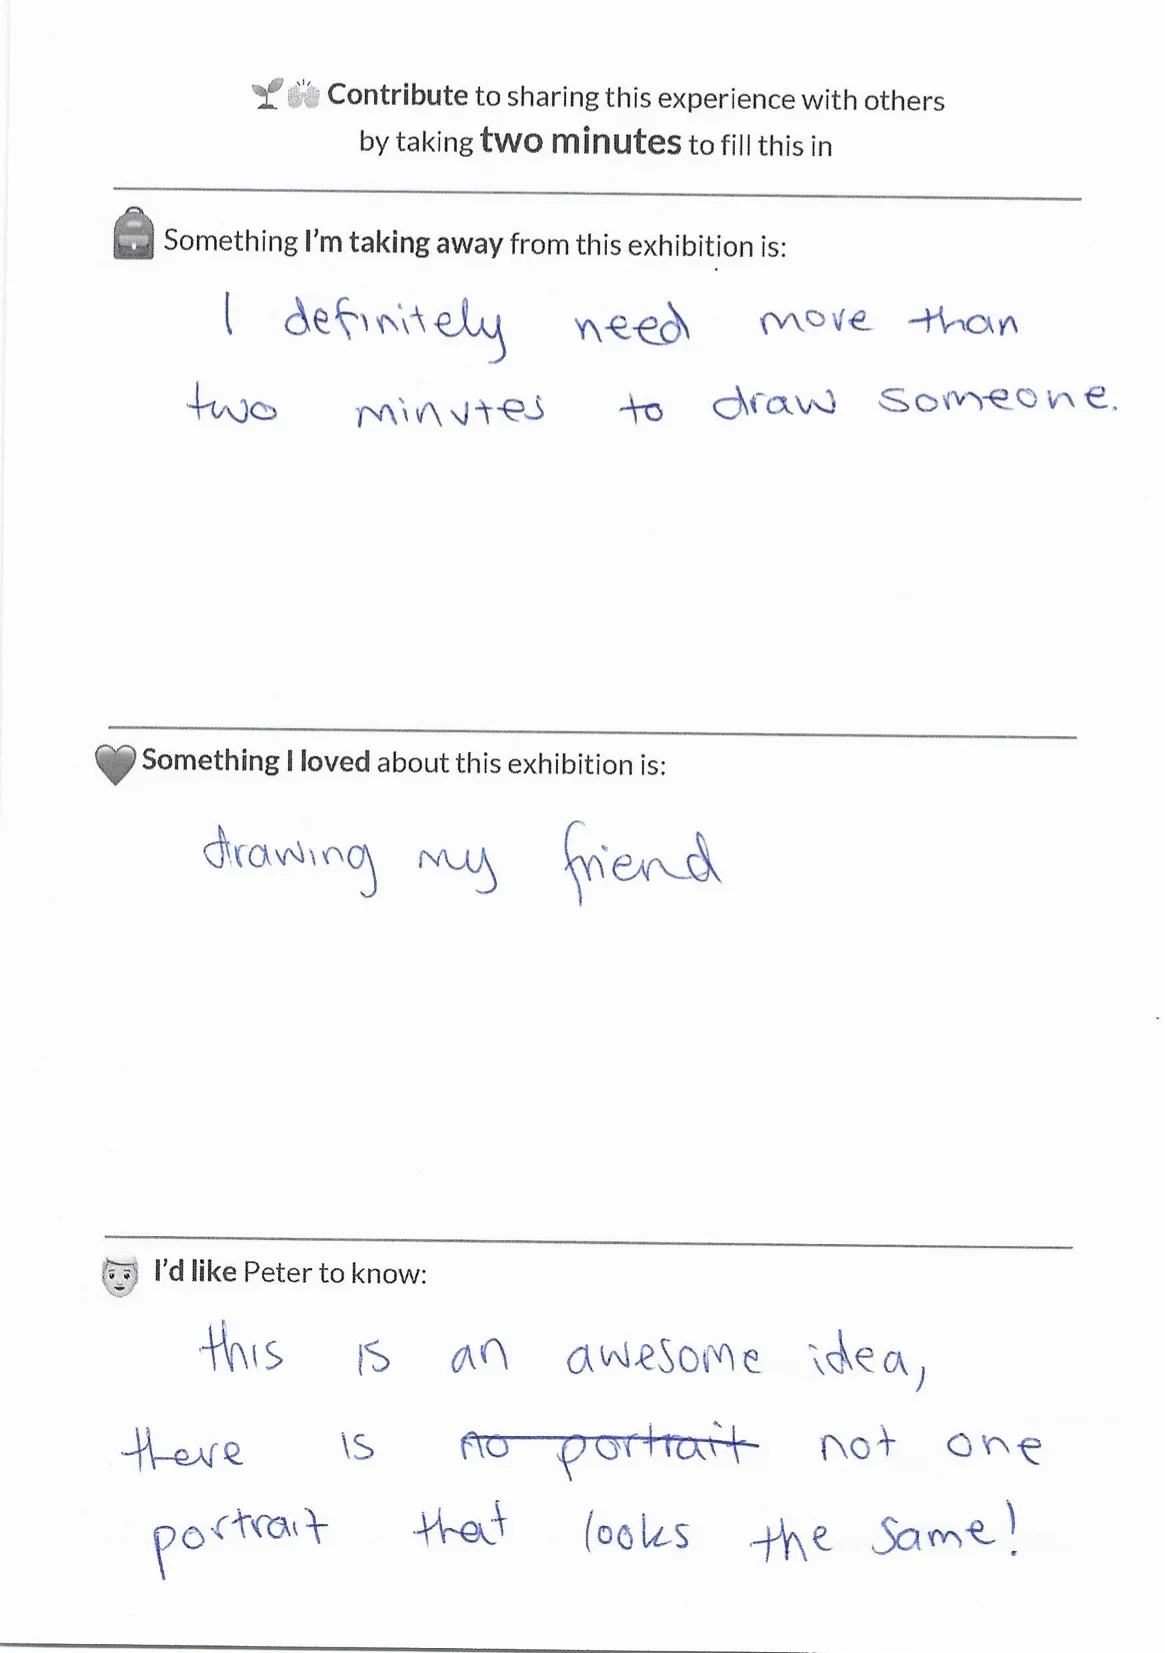 Contribute to sharing this experience with others
by taking two minutes to fill this in
Something I'm taking away from this exhibition is:
I definitely need more than
two minutes to draw someone.
Something I loved about this exhibition is:
drawing my friend
I'd like Peter to know:
this is an awesome idea,
there is ~~no portrait~~ not one
portrait that looks the same!